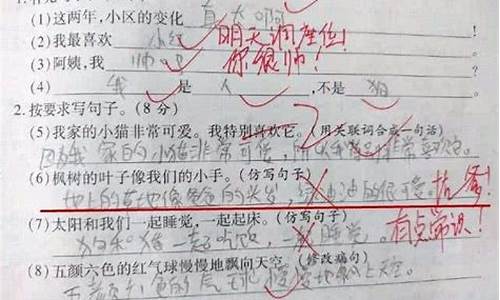 (1)这两年,小区的变化 真大啊
(2)我最喜欢 小红 明天调座位!
(3)阿姨,我 帅吧 你很帅!
(4) 我 是 人 ,不是 狗
2.按要求写句子。(8分)
(5)我家的小猫非常可爱。我特别喜欢它。(用关联词合成一句话)
因为我家的小猫非常可爱,所以我特别非常喜欢它。
(6)枫树的叶子像我们的小手。(仿写句子)
地上的草地像爸爸的头发, 的很可爱。
(7)太阳和我们一起睡觉,一起起床。(仿写句子)
狗和猪一起吃饭,一起睡觉。 有点常识!
(8)五颜六色的红气球慢慢地飘向天空。(修改病句)
五颜六色的气球慢慢地飘上天空。